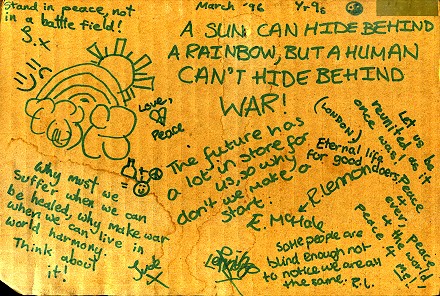 Stand in peace, not
in a battle field!
S.x
March '96 Yr 9s
A SUN CAN HIDE BEHIND
A RAINBOW, BUT A HUMAN
CAN'T HIDE BEHIND
WAR!
Love,
Peace
The future has
a lot in store for
us, so why
don't we make a
start.
E. McHale
(LONDON)
Eternal life
for good doers
R. Lemon
Let us be
reunited do it
once
Peace 4 ever
Peace 4 the world
Peace 4 me!
Why must we
suffer when we can
be healed, why make war
when we can live in
world harmony.
Think about
it!
Some people are
blind enough not
to notice we are all
the same. R.L.